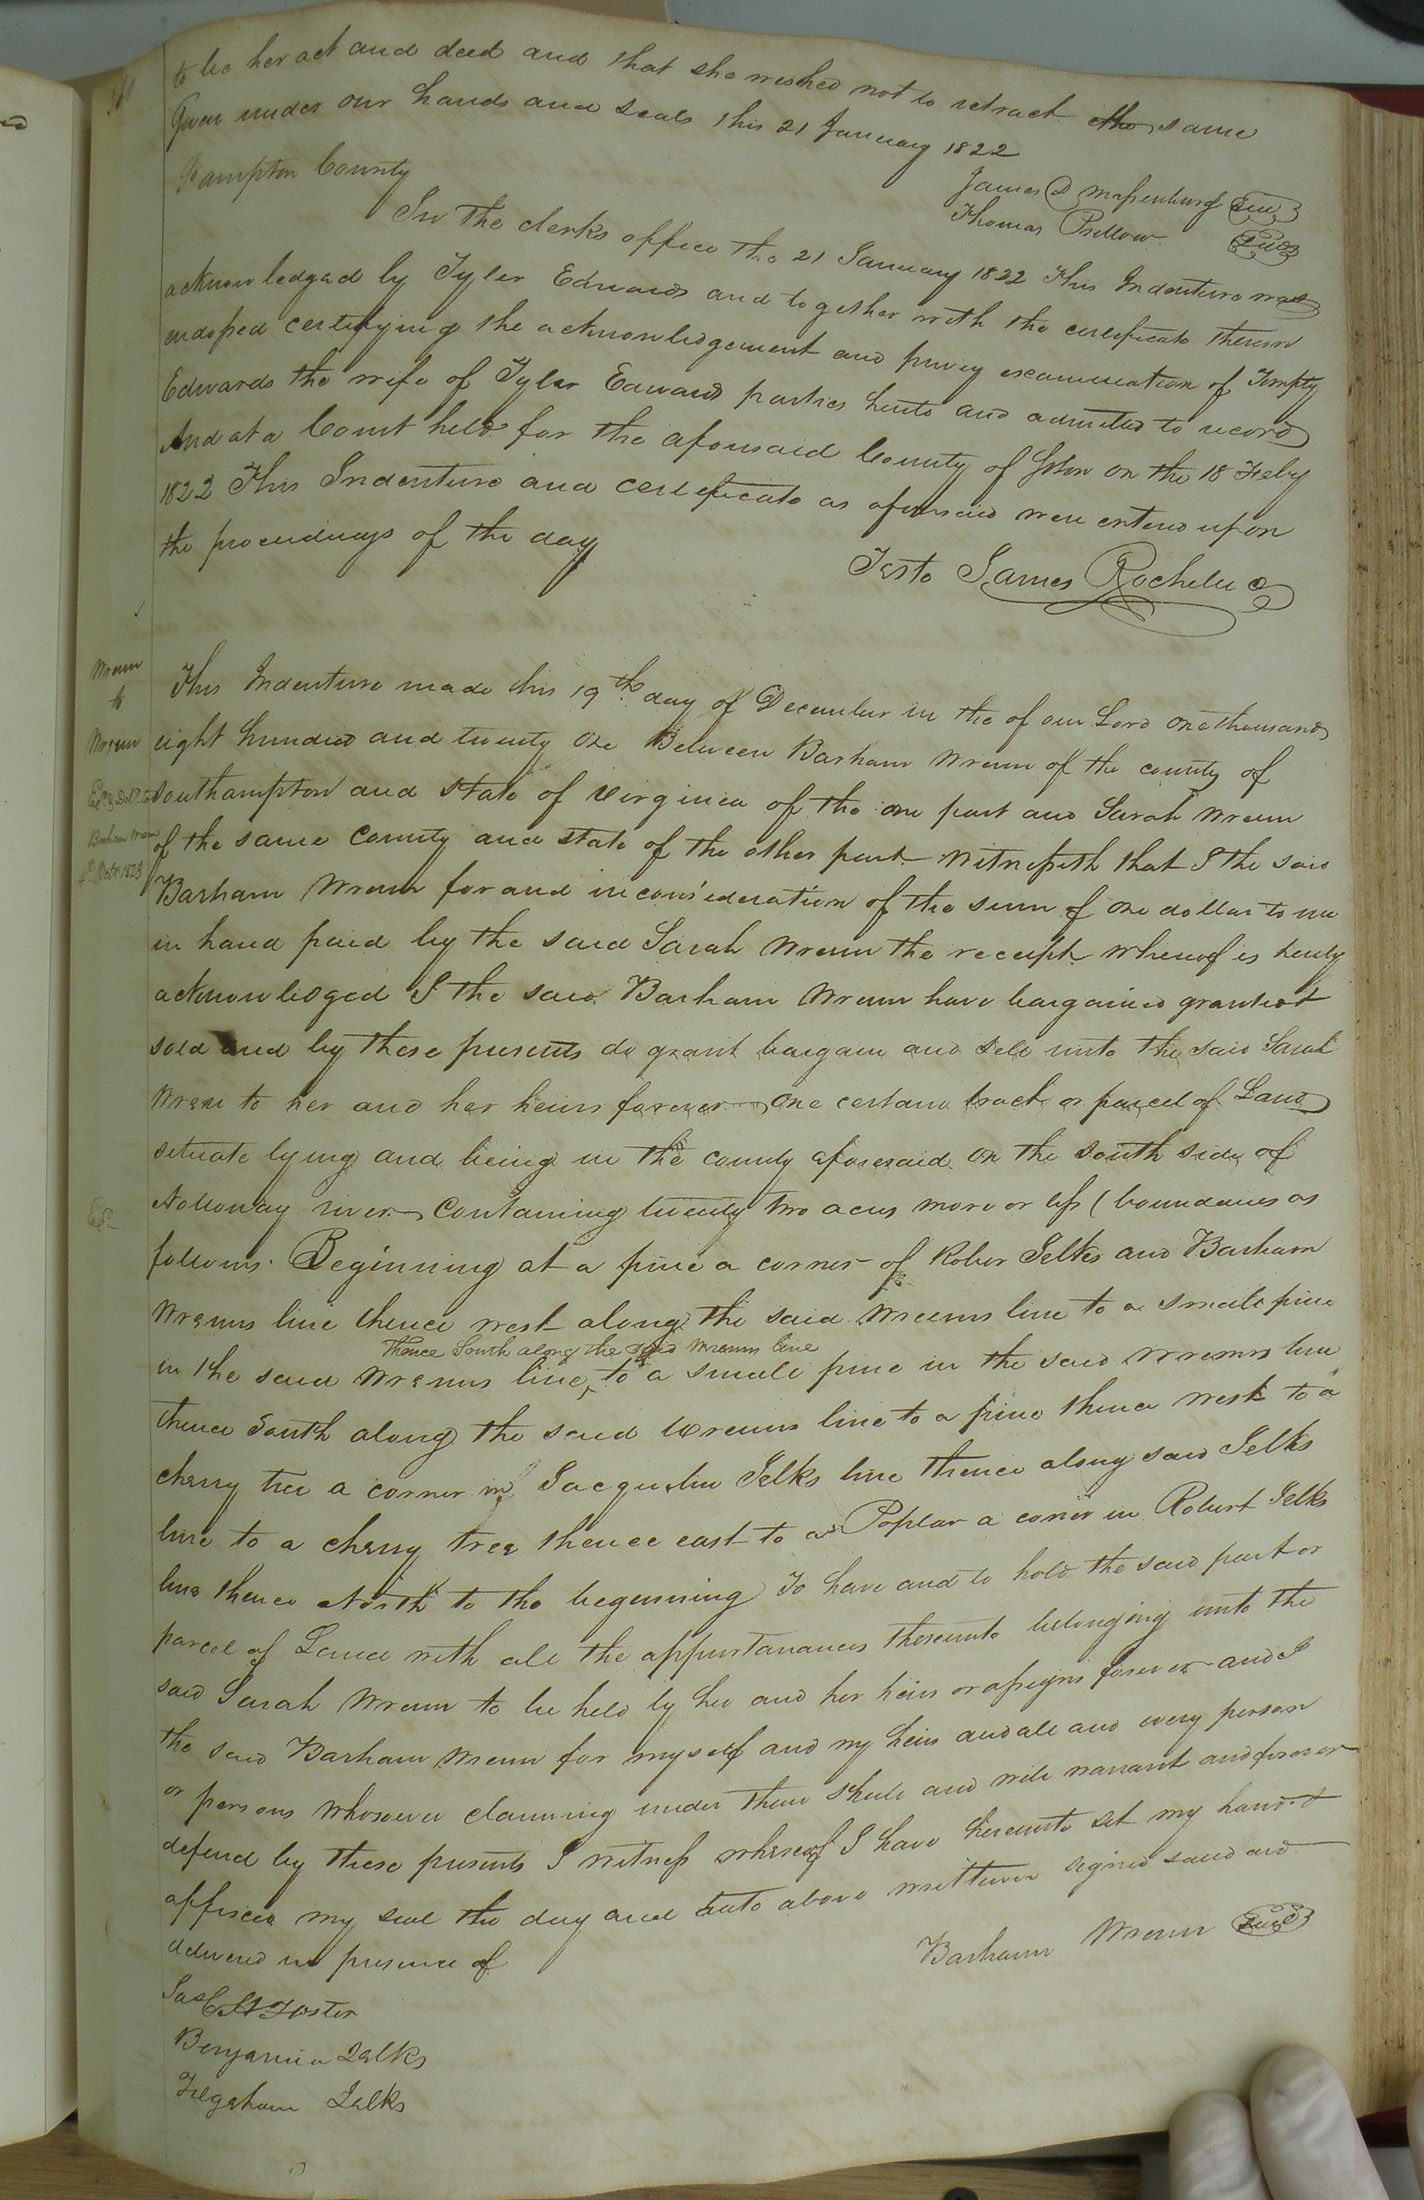 to be her act and deed and that she wished not to retract the same
Given under our hands and seals this 21 January 1822
James D Massenburg Seal
Thomas Pretlow Seal
Sampton County
In the clerks office the 21 January 1822 This Indenture was
acknowledged by Tyler Edwards and together with the certificate thereon
endossed certifying the acknowledgement and privy examination of Tempty
Edwards the wife of Tyler Edwards parties hereto and admitted to record
And at a Court held for the aforesaid County of Sohton on the 18 Feby
1822 This Indenture and certificate as aforesaid were entered upon
the proceedings of the day
Teste James Rochelle C
Wrenn
to
Wrenn
Exd & Deld to
Barham Wrenn
4th Octr 1828
This Indenture made this 19th day of December in the of our Lord one thousand
eight hundred and twenty one Between Barham Wrenn of the county of
Southampton and state of Virginia of the one part and Sarah Wrenn
of the same County and state of the other part Witnesseth that I the said
Barham Wrenn for and in consideration of the sum of one dollar to me
in hand paid by the said Sarah Wrenn the receipt whereof is hereby
acknowledged I the said Barham Wrenn have bargained granted &
sold and by these presents do grant bargain and sell unto the said Sarah
Wrenn to her and her heirs forever one certain tract or parcel of Land
situate lying and being in the county aforesaid on the south side of
Nottoway river Containing twenty two acres more or less (boundaries as
follows. Beginning at a pine a corner of Rober Jelks and Barham
Wrenns line thence west along the said Wrenns line to a small pine
in the said Wrenns line, thence South along the said Wrenns line to a small pine in the said Wrenns line
thence South along the said Wrenns line to a pine thence west to a
cherry tree a corner in Jacquelin Jelks line thence along said Jelks
line to a cherry tree thence east to a Poplar a corner in Robert Jelks
line thence North to the beginning To have and to hold the said part or
parcel of Land with all the appurtanances thereunto belonging unto the
said Sarah Wrenn to be held by her and her heirs or assigns forever and I
the said Barham Wrenn for myself and my heirs and all and every person
or persons whosoever claiming under them shall and will warrant and forever
defend by these presents I witness whereof I have hereunto set my hand &
affixed my seal the day and date above written signed seald and
delivered in presence of
Barham Wrenn Seal
Jas C H Foster
Benjamin Jelks
Jelks